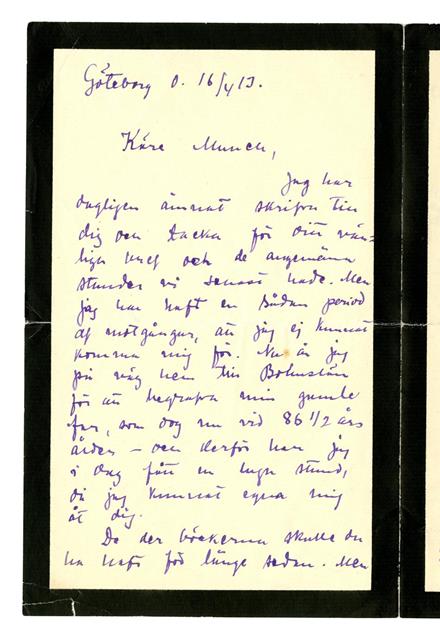 Göteborg d. 16/4 13.
Käre Munch,
Jag har
dagligen ämnat skrifva till
dig och tacka för ditt vän-
liga bref och de angenäma
stunder vi senast hade. Men
jag har haft en sådan period
af motgångar, att jag ej kunnat
komma mig för. Nu är jag
på väg hem till Bohuslän
för att begrafva min gamle
far, som dog nu vid 86 1/2 års
ålder – och derför har jag
i dag fått en lugn stund,
då jag kunnat egna mig
åt dig.
De der böckerna skulle du
ha haft för länge sedan. Men